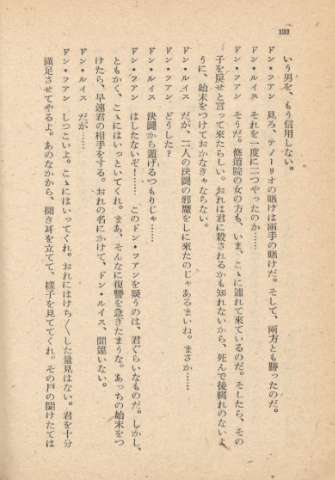 122
いう男を、もう信用しない。
ドン・フアン　見ろ、テノーリオの賭けは両手の賭けだ。そして、両方とも勝ったのだ。
ドン・ルイス　それを一度に二つやったのか……
ドン・フアン　そうだ。修道院の女の方も、いま、こゝに連れて来ているのだ。そしたら、その
子を戻せと言って来たらしい。おれは君に殺されるかも知れないから、死んで後腐れのないよ
うに、始末をつけておかなきゃならない。
ドン・ルイス　だが、二人の決闘の邪魔をしに来たのじゃあるまいね。まさか……
ドン・フアン　どうした？
ドン・ルイス　決闘から逃げるつもりじゃ……
ドン・フアン　はしたないぞ！……　このドン・フアンを疑うのは、君ぐらいなものだ。しかし、
ともかく、こゝにはいっといてくれ。まあ、そんなに復讐を急ぎたまうな。あっちの始末をつ
けたら、早速君の相手をする。おれの名にかけて、ドン・ルイス、間違いない。
ドン・ルイス　だが……
ドン・フアン　しつこいよ。こゝにはいってくれ。おれにはけち／＼した量見はない。君を十分
満足させてやるよ。あのなかから、聞き耳を立てて、様子を見ててくれ。その戸の開けたては